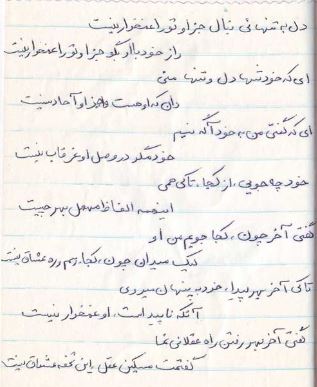 دل به تنهائی منال جز او تو را غمخوار نیست
راز خود با او بگو جز او تو را غمخوار نیست
ای که خود تنها دل و تنها منی
دان که او هست و جز او آحاد نیست
ای که گفتی من به خود آگه نیم
خود مگر در وصل او غرقاب نیست
خود چه جویی، از کجا، تا کی همی
اینهمه الفاظ مهمل بهر چیست
گفتی آخر چون، کجا جویم من او
لیک میدان چون، کجا، رسم ره عشاق نیست
تا کی آخر بهر پیدا، خود به پنهان میروی
آنکه ناپید است، او غمخوار نیست
گفتی آخر بهر رفتن راه عقلانی نما
گفتمت مسکین عقل، این تحفه عشاق نیست